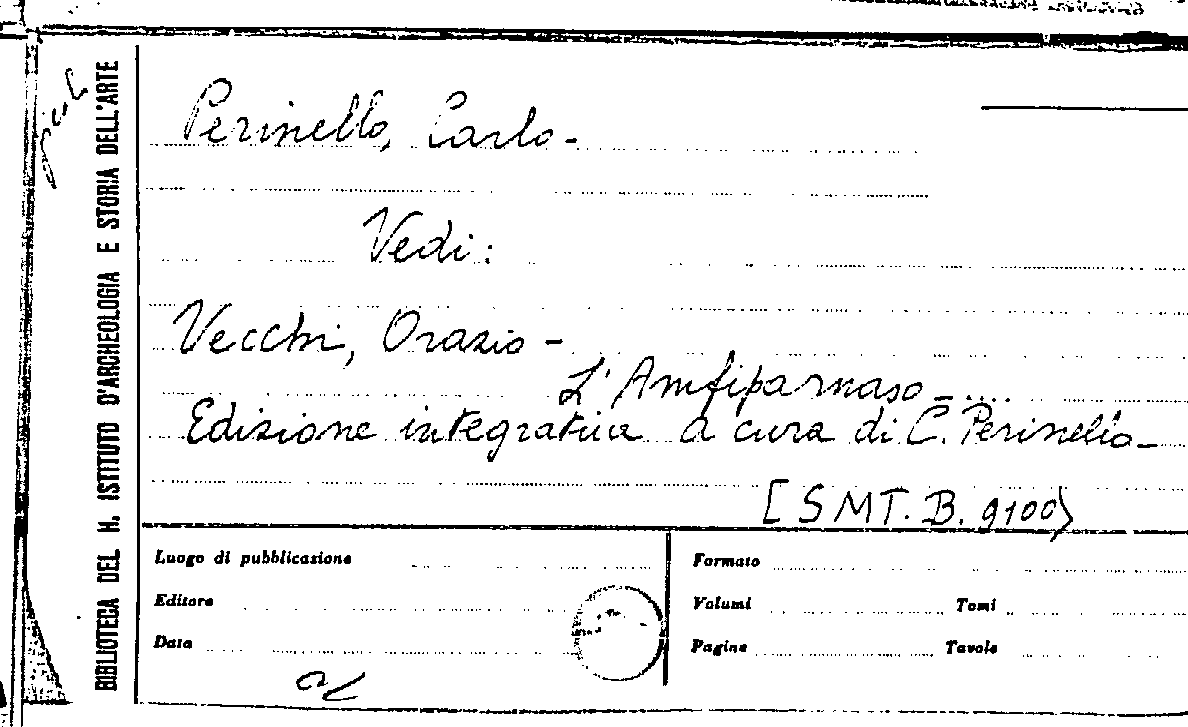 BIBLIOTECA DEL H. ISTITUTO D'ARCHEOLOGIA E STORIA DELL'ARTE
Perinello, Carlo -
Vedi:
Vecchi, Orazio -
L'Amfiparnaso - ....
Edizione integrativa a cura di C. Perinello -
[SMT. B. 9100>
Luogo di pubblicazione
Formato
Editore
Volumi Tomi
Data
Pagine Tavole